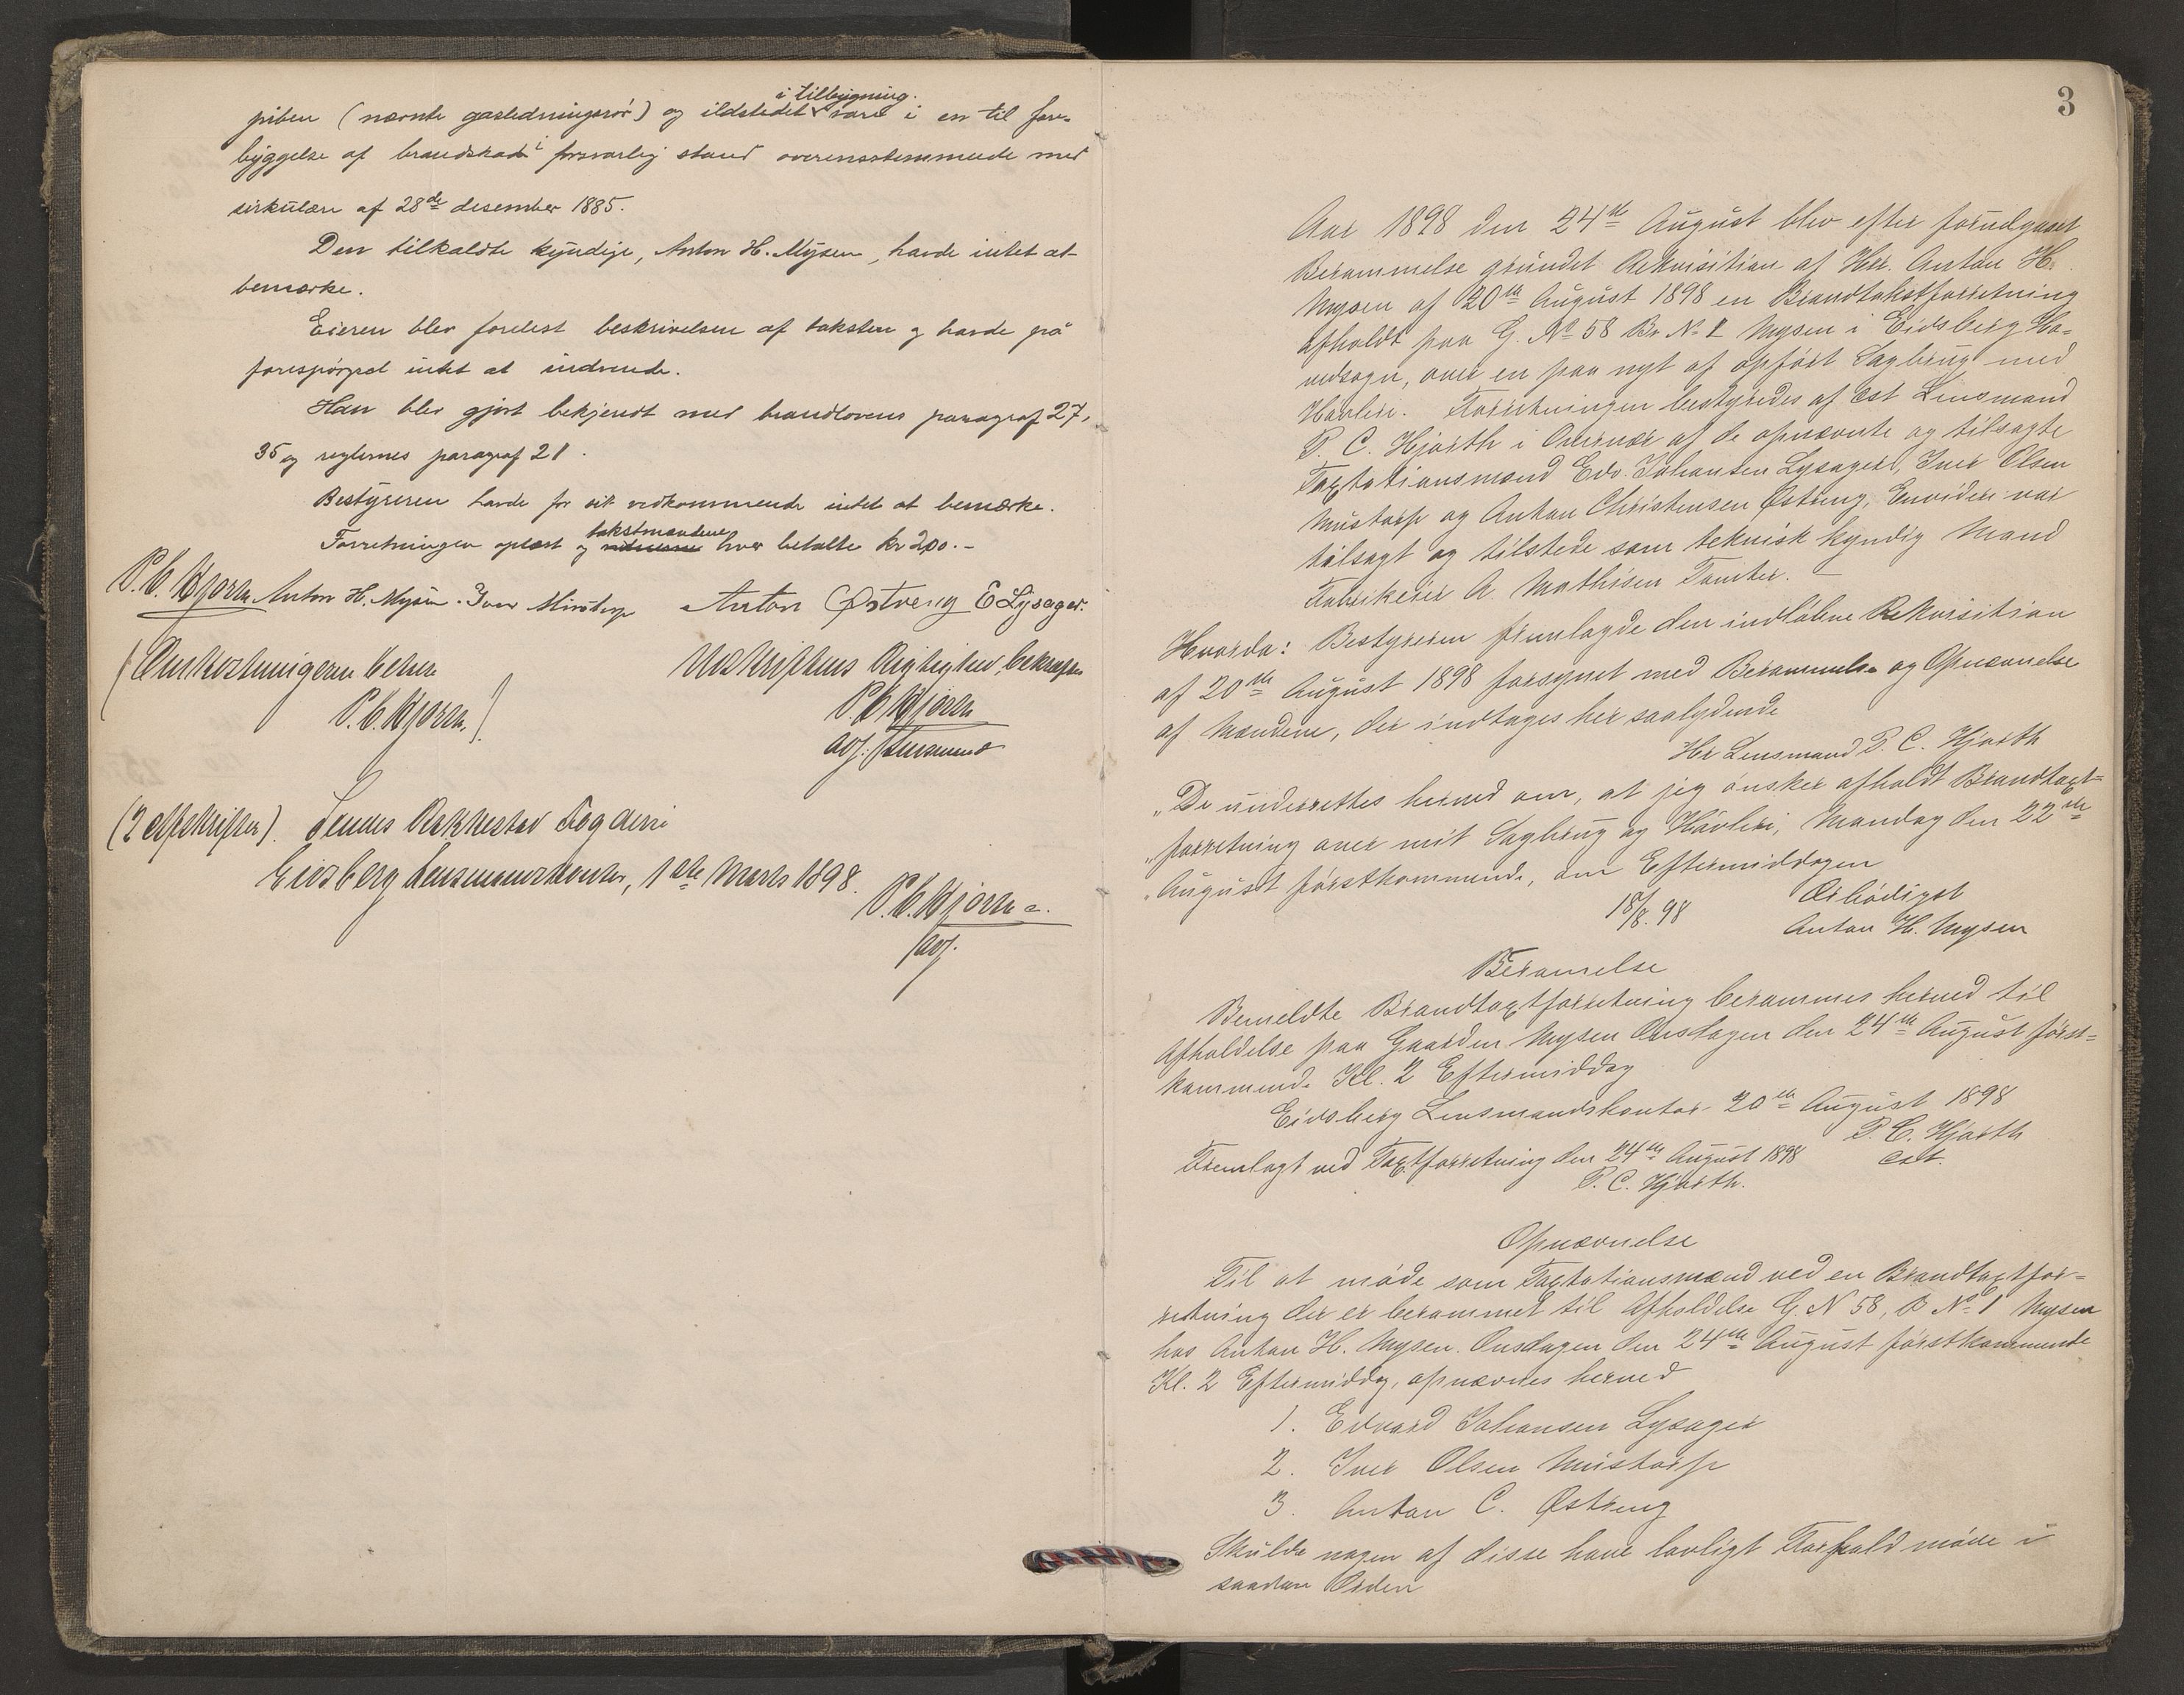 i tilbygning.
piben (nævnte gasledningsrör) og ildstedet være i en til fore-
byggelse af brandskade i forsvarlig stand overensstemmende med
sirkulære af 28de desember 1885.
Den tilkaldte kyndige, Anton H. Mysen, havde intet at
bemærke.
Eieren blev forelest beskrivelsen af taksten og havde på
forespörgsel intet at indvende.
Han blev gjort bekjendt med brandlovens paragraf 27,
35 og reglernes paragraf 21.
Bestyreren havde for sit vedkommende intet at bemærke.
takstmændene
Forretningen oplæst og hver betalte kr 2,00.-
P. C. Hjorth Anton H. Mysen. Iver Mustorp Anton Østreng E Lysager.
(Omkostningerne betalt Udskriftens Rigtighed bekræftes
P. C. Hjorth.) P. C. Hjorth
adj. Lensmand
(2 Afskrifter). Rakkestad Fogderi
Eidsberg Lensmandskontor, 1ste Marts 1898.
P. C. Hjorth
adj.
3
Aar 1898 den 24de August blev efter forudgaaet
Berammelse grundet Rekvisition af Hr. Anton H.
Mysen af 20de August 1898 en Brandtakstforretning
afholdt paa G. No 58 Br. No 1 Mysen i Eidsberg Ho-
vedsogn, over en paa nyt af opført Sagbrug med
Høvleri. Forretningen bestyredes af cst Lensmand
P. C. Hjorth i Overvær af de opnævnte og tilsagte
Taxtationsmænd Edv. Johansen Lysager, Iver Olsen
Mustorp og Anton Christensen Østreng, Envidere var
tilsagt og tilstede som teknisk kyndig Mand
Fabrikeier A. Mathisen Tomter. —
Hvorda: Bestyreren fremlagde den indløbne Rekvisition
af 20de August 1898 forsynet med Berammelse og Opnævnelse
af Mændene, der indtages her saalydende
Hr Lensmand P. C. Hjorth
„De underrettes herved om, at jeg ønsker afholdt Brandtaxt-
„forretning over mit Sagbrug og Høvleri, Mandag den 22de
„August førstkommende, om Eftermiddagen
18/8. 98 Ærbødigst
Anton H. Mysen
Beramelse
Bemeldte Brandtaxtforretning berammes herved til
Afholdelse paa Gaarden Mysen Onsdagen den 24de August først-
kommende Kl. 2 Eftermiddag
Eidsberg Lensmandskontor 20de August 1898
P. C. Hjorth
Fremlagt ved Taxtforretning den 24de August 1898 cst.
P. C. Hjorth.
Opnævnelse
Til at møde som Taxtationsmænd ved en Brandtaxtfor-
retning der er berammet til Afholdelse G. N 58, B No 1 Mysen
hos Anton H. Mysen. Onsdagen den 24de August førstkommende
Kl. 2 Eftermiddag, opnævnes herved
1. Edvard Johansen Lysager
2. Iver Olsen Mustorp
3. Anton C. Østreng
Skulde nogen af disse have lovligt Forfald møde i
saadan Orden